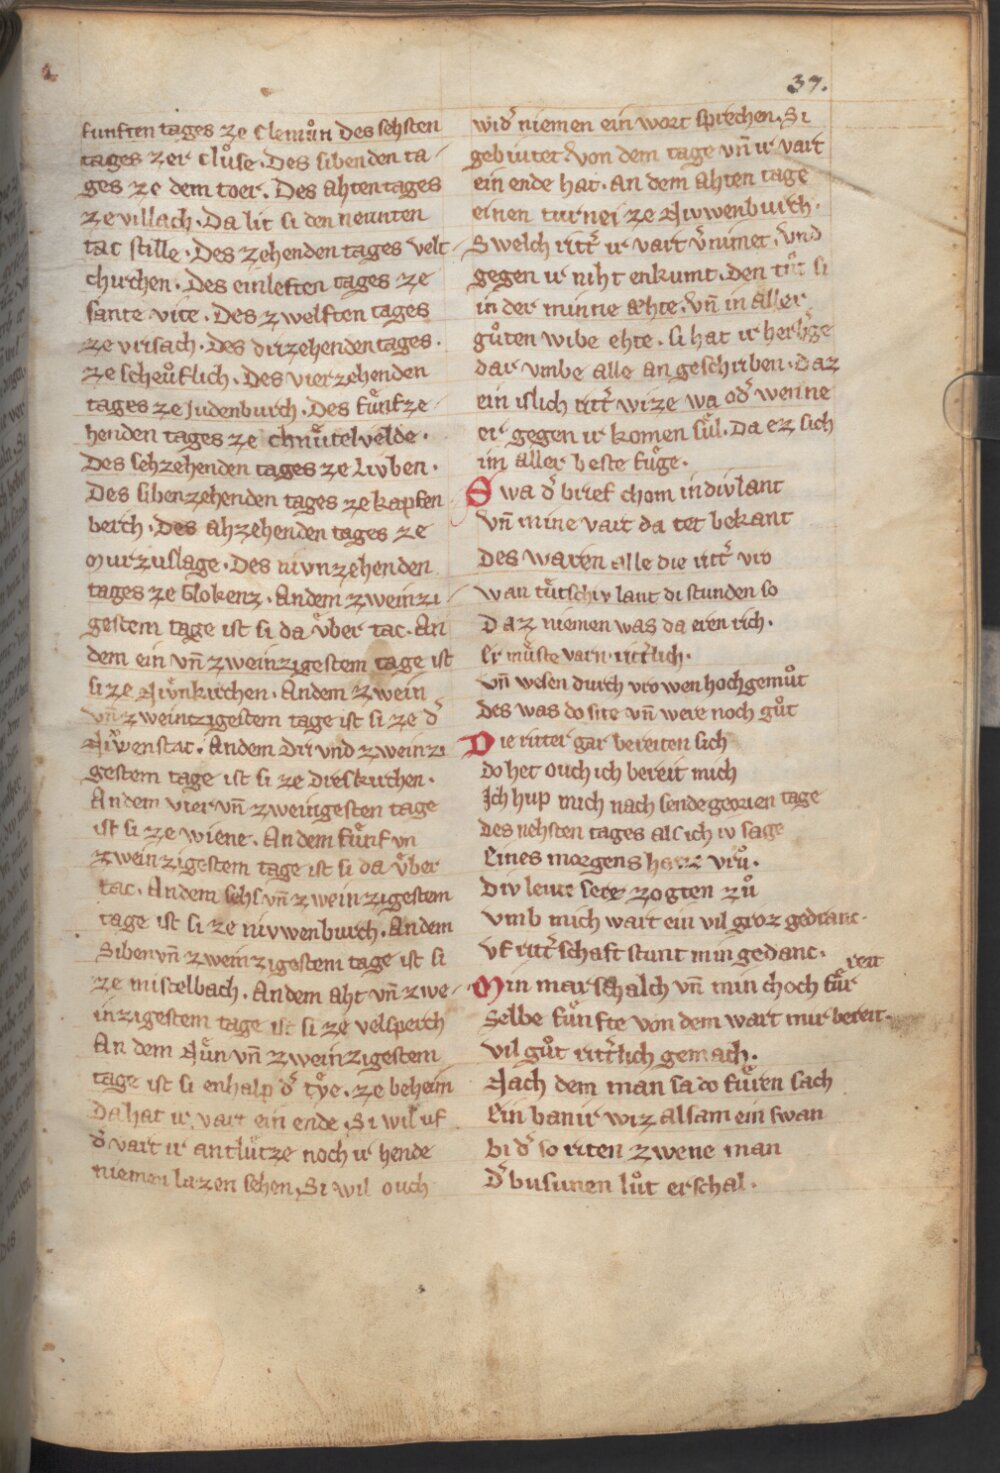 37.
funften tages ze Clemuͦn des sehsten
tages zer cluͦse. Des sibenden ta
ges ze dem toer. Des ahten tages
ze villach. Da lit si den neunten
tac stille. Des zehenden tages velt
chirchen. Des einleften tages ze
sante vite. Des zwelften tages
ze vrisach. Des drizehenden tages.
ze scheuͦflich. Des vierzehenden
tages ze Judenburch. Des fuͤnfze
henden tages ze chnuͤtelvelde.
Des sehzehenden tages ze Livben.
Des sibenzehenden tages ze kapfen
berch. Des ahzehenden tages ze
Murzuslage. Des nivnzehenden
tages ze Glokenz. An dem zweinzi
gestem tage ist si da uͤber tac. An
dem ein vn̄ zweinzigestem tage ist
si ze Niͮnkirchen. An dem zwein
vn̄ zweintzigestem tage ist si ze d͛
Niͮwenstat. An dem Dri vnd zweinzi
gestem tage ist si ze Dreskirchen.
An dem vier vn̄ zweingesten tage
ist si ze wiene. An dem fuͤnf vn
zweinzigestem tage ist si da uͤber
tac. An dem sehs vn̄ zweinzigestem
tage ist si ze nivwenburch. An dem
Siben vn̄ zweinzigestem tage ist si
ze mistelbach. An dem aht vn̄ zwe
inzigestem tage ist si ze velsperch
An dem Nuͤn vn̄ zweinzigestem
tage ist si enhalp d͛ tyͦe. ze beheim
Da hat ir vart ein ende. Si wil uf
d͛ vart ir antluͤtze noch ir hende
niemen lazen sehen. Si wil ouch
wid͛ niemen ein wort sprechen. Si
gebiutet. von dem tage vn̄ ir vart
ein ende hat. An dem ahten tage
einen turnei ze Nivwenburch.
Swelch ritt͛ ir vart v͛nimet. vnd
gegen ir niht enkumt. den tuͦt si
in der minne æhte. vn̄ in aller
guͦten wibe ehte. si hat ir herb͛ge
dar vmbe alle an geschriben. Daz
ein islich ritt͛ wize wa od͛ wenne
er gegen ir komen suͤl. Da ez sich
im aller beste fuͤge.
Swa d͛ brief chom in div lant
vn̄ mine vart da tet bekant
Des waren alle die ritt͛ vro
wan tuͤtschiv lant di stunden so
Daz niemen was da eren rich.
Er muͤste varn ritt͛lich.
vn̄ wesen durch vrowen hochgemuͦt
Des was do site vn̄ were noch guͦt
Die ritter gar bereiten sich
do het ouch ich bereit mich
Ich hup mich nach sende georien tage
Des nehsten tages als ich iv sage
Eines morgens harz vruͦ.
Div leute sere zogten zuͦ
Vmb mich wart ein vil groz gedranc.
Vf ritt͛schaft stunt min gedanc.
Min marschalch vn̄ min choch fuͤr reit
Selbe fuͤnfte von dem wart mir bereit.
Vil guͦt ritt͛lich gemach.
Nach dem man sa do fuͤren sach
Ein banir wiz alsam ein swan
bi d͛ so riten zwene man
d͛ busunen luͦt erschal.